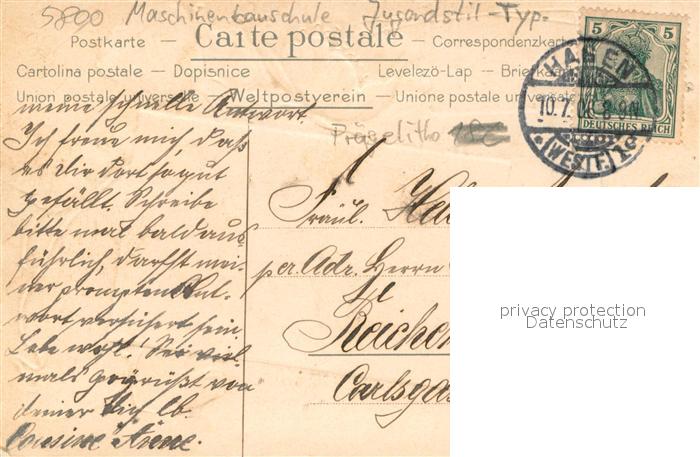 5800 Maschinenbauschule Jugendstil-Typ.
Postkarte — Carte postale — Correspondenzkarte
Cartolina postale — Dopisnice
Levelezö-Lap — Briefkaart
Union postale universelle — Weltpostverein — Unione postale universale
5
DEUTSCHES REICH
HAGEN
10.7.
(WESTF.) 1
Prägelitho
meine schnelle Antwort.
Ich freue mich, daß
es Dir dort so gut
gefällt. Schreibe
bitte mal bald aus-
führlich, darfst mei-
ner prompten Ant-
wort versichert sein
Lebe wohl! Sei viel-
mals gegrüßt von
deiner Dich lb.
Cousine
Fräul.
per Adr. Herrn
Reichen
Carlsga
privacy protection
Datenschutz